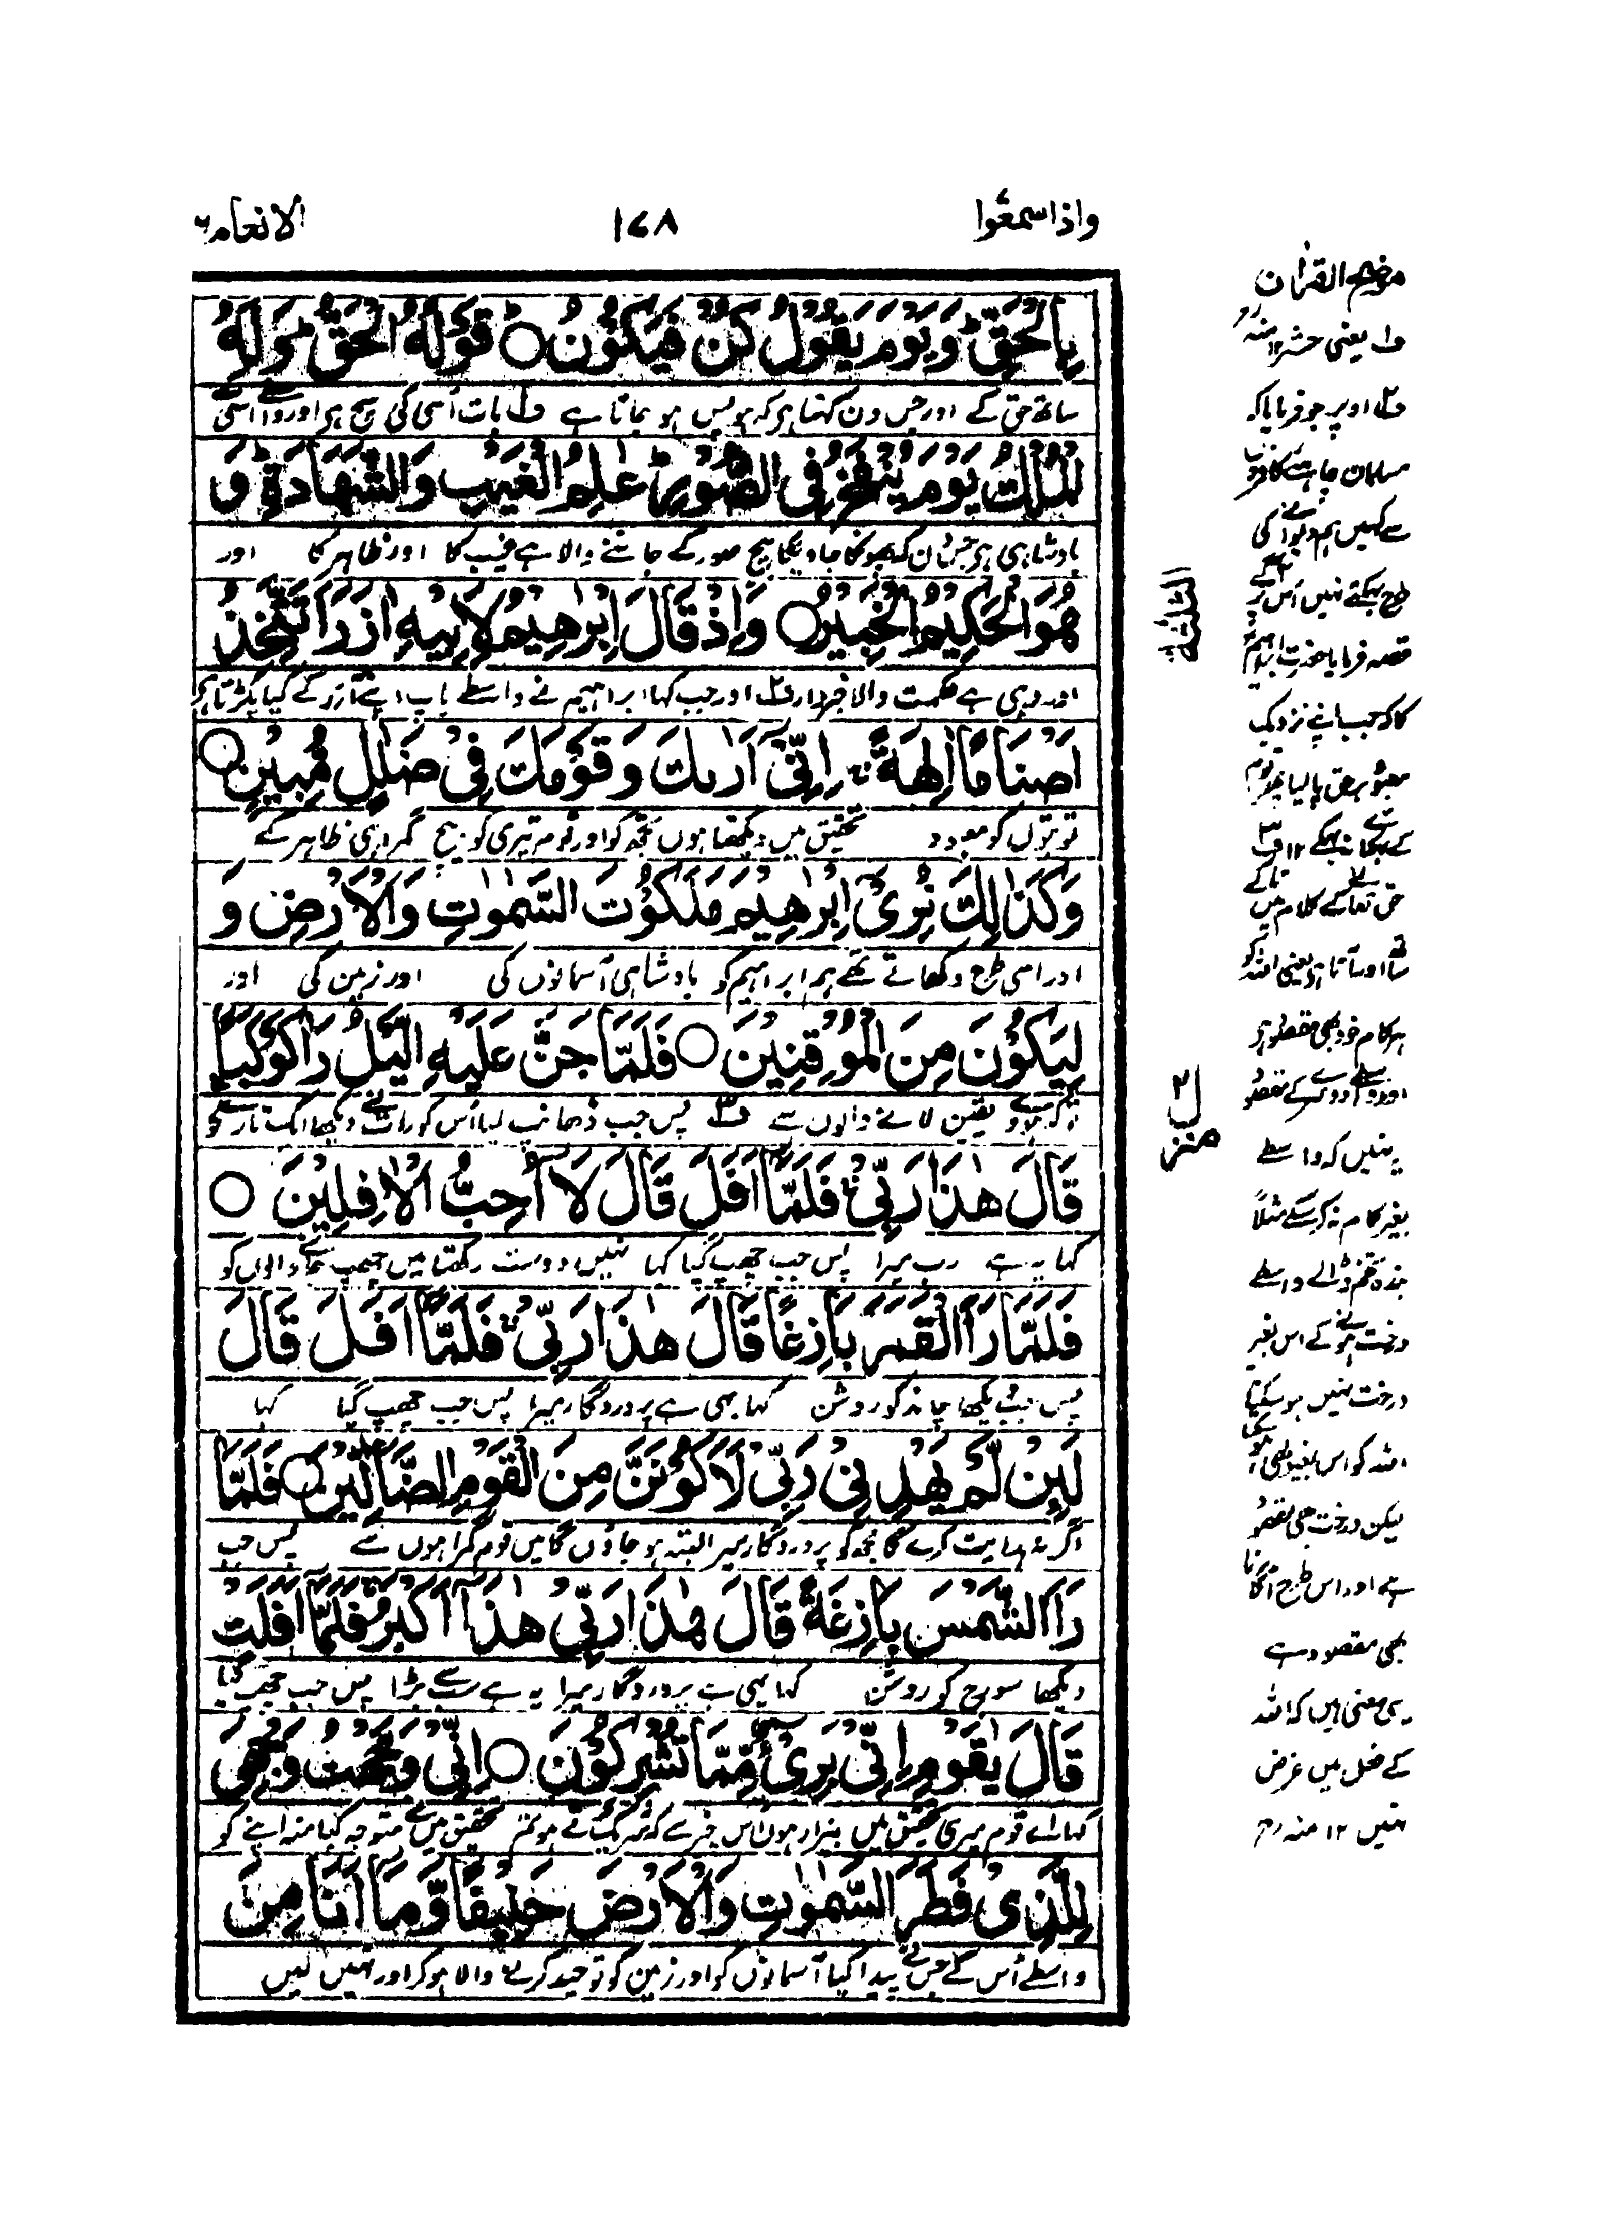 واذاسمعوا
١٧٨
الانعام ٦
بِالْحَقِّ ؕ وَيَوْمَ يَقُوْلُ كُنْ فَيَكُوْنُ ؕ ○ قَوْلُهُ الْحَقُّ ؕ وَلَهُ
ساتھ حق کے اور جس دن کہتا ہر کہ ہو پس ہو جاتا ہے ف١ بات اُسی کی سچ ہر اور واسطے اسی کے
الْمُلْكُ يَوْمَ يُنْفَخُ فِى الصُّوْرِ ؕ عٰلِمُ الْغَيْبِ وَالشَّهَادَةِ ؕ وَ
بادشاہی ہر جس دن کہ پھونکا جاویگا بیچ صور کے جاننے والا ہے غیب کا اور ظاہر کا اور
هُوَ الْحَكِيْمُ الْخَبِيْرُ ○ وَاِذْ قَالَ اِبْرٰهِيْمُ لِاَبِيْهِ اٰزَرَ اَتَتَّخِذُ
اور وہی ہے حکمت والا خبردار ف٢ اور جب کہا ابراہیم نے واسطے باپ اپنے آزر کے کیا پکڑتا ہر
اَصْنَامًا اٰلِهَةً ۚ اِنِّىْٓ اَرٰىكَ وَقَوْمَكَ فِىْ ضَلٰلٍ مُّبِيْنٍ ○
تو بتوں کو معبود تحقیق میں دیکھتا ہوں تجھ کو اور قوم تیری کو بیچ گمراہی ظاہر کے
وَكَذٰلِكَ نُرِىْٓ اِبْرٰهِيْمَ مَلَكُوْتَ السَّمٰوٰتِ وَالْاَرْضِ وَ
اور اسی طرح دکھاتے تھے ہم ابراہیم کو بادشاہی آسمانوں کی اور زمین کی اور
لِيَكُوْنَ مِنَ الْمُوْقِنِيْنَ ○ فَلَمَّا جَنَّ عَلَيْهِ الَّيْلُ رَاٰ كَوْكَبًا ۚ
تاکہ ہووے یقین لانے والوں سے ف٣ پس جب ڈھانپ لیا اُس کو رات نے دیکھا ایک تارے کو
قَالَ هٰذَا رَبِّىْ ۚ فَلَمَّآ اَفَلَ قَالَ لَآ اُحِبُّ الْاٰفِلِيْنَ ○
کہا یہ ہے رب میرا پس جب چھپ گیا کہا نہیں دوست رکھتا میں چھپ جانے والوں کو
فَلَمَّا رَاَ الْقَمَرَ بَازِغًا قَالَ هٰذَا رَبِّىْ ۚ فَلَمَّآ اَفَلَ قَالَ
پس جب دیکھا چاند کو روشن کہا یہی ہے پروردگار میرا پس جب چھپ گیا کہا
لَئِنْ لَّمْ يَهْدِنِىْ رَبِّىْ لَاَكُوْنَنَّ مِنَ الْقَوْمِ الضَّآلِّيْنَ ○ فَلَمَّا
اگر نہ ہدایت کرے گا مجھ کو پروردگار میرا البتہ ہو جاؤں گا میں قوم گمراہوں سے پس جب
رَاَ الشَّمْسَ بَازِغَةً قَالَ هٰذَا رَبِّىْ هٰذَآ اَكْبَرُ ۚ فَلَمَّآ اَفَلَتْ
دیکھا سورج کو روشن کہا یہی ہے پروردگار میرا یہ ہے سب سے بڑا پس جب چھپ گیا
قَالَ يٰقَوْمِ اِنِّىْ بَرِىْٓءٌ مِّمَّا تُشْرِكُوْنَ ○ اِنِّىْ وَجَّهْتُ وَجْهِىَ
کہا اے قوم میری تحقیق میں بیزار ہوں اس چیز سے کہ شریک کرتے ہو تم تحقیق میں نے متوجہ کیا منہ اپنے کو
لِلَّذِىْ فَطَرَ السَّمٰوٰتِ وَالْاَرْضَ حَنِيْفًا وَّمَآ اَنَا مِنَ
واسطے اُس کے جس نے پیدا کیا آسمانوں کو اور زمین کو توحید کرنے والا ہو کر اور نہیں میں
الثلثة
منزل ٢
موضح القرآن
ف١ یعنی حشر ١٢ منہ رح
ف٢ اوپر جو فرمایا کہ
مسلمان چاہتے کافروں
سے کہیں ہم دیوانے کی
طرح بہکتے نہیں اس پر آگے
قصہ فرمایا حضرت ابراہیم
کا کہ جب اپنے نزدیک
معبود برحق پا لیا پھر قوم
کے بہکانے سے نہ بہکے ١٢ ف٣
حق تعالے کے کلام میں تاکے
ساتھ اور آتا ہے یعنی اللہ کو
ہر کام خود بھی مقصود ہر
اور واسطے دوسرے کے مقصود
یہ نہیں کہ واسطے
بغیر کام نہ کر سکے مثلاً
بندہ تخم ڈالے واسطے
درخت ہونے کے اس بغیر
درخت نہیں ہو سکتا
اللہ کو اس بغیر بھی ہو سکتا
لیکن درخت بھی مقصود
ہے اور اس طرح اگانا
بھی مقصود ہے
یہی معنی ہیں کہ اللہ
کے فعل میں غرض
نہیں ١٢ منہ رح